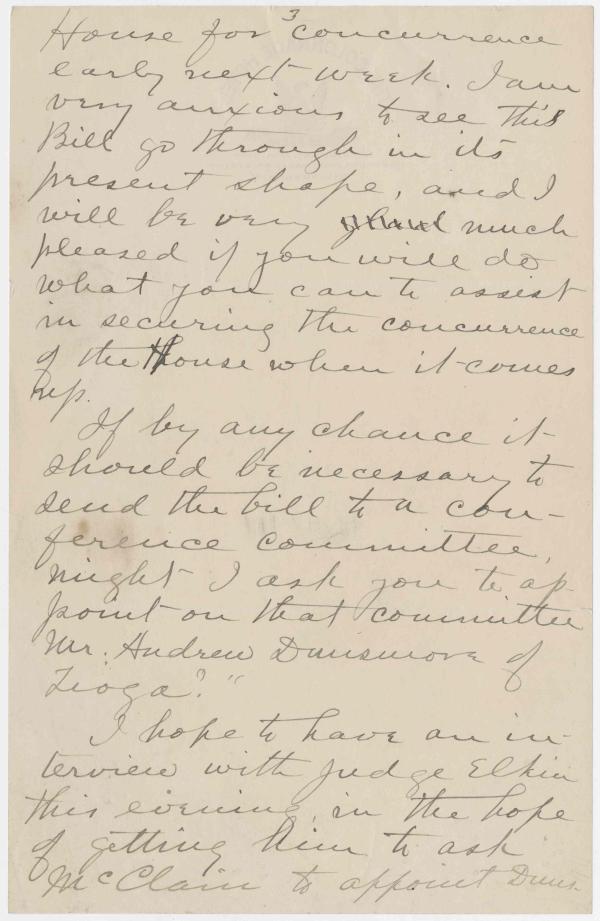 3
House for concurrence
early next week. I am
very anxious to see this
Bill go through in its
present shape, and I
will be very much
pleased if you will do
what you can to assist
in securing the concurrence
of the House when it comes
up.
If by any chance it
should be necessary to
send the bill to a con-
ference committee,
might I ask you to ap-
point on that committee
Mr. Andrew Dunsmore of
Tioga?"
I hope to have an in-
terview with Judge Elkin
this evening, in the hope
of getting him to ask
McClain to appoint Duns-